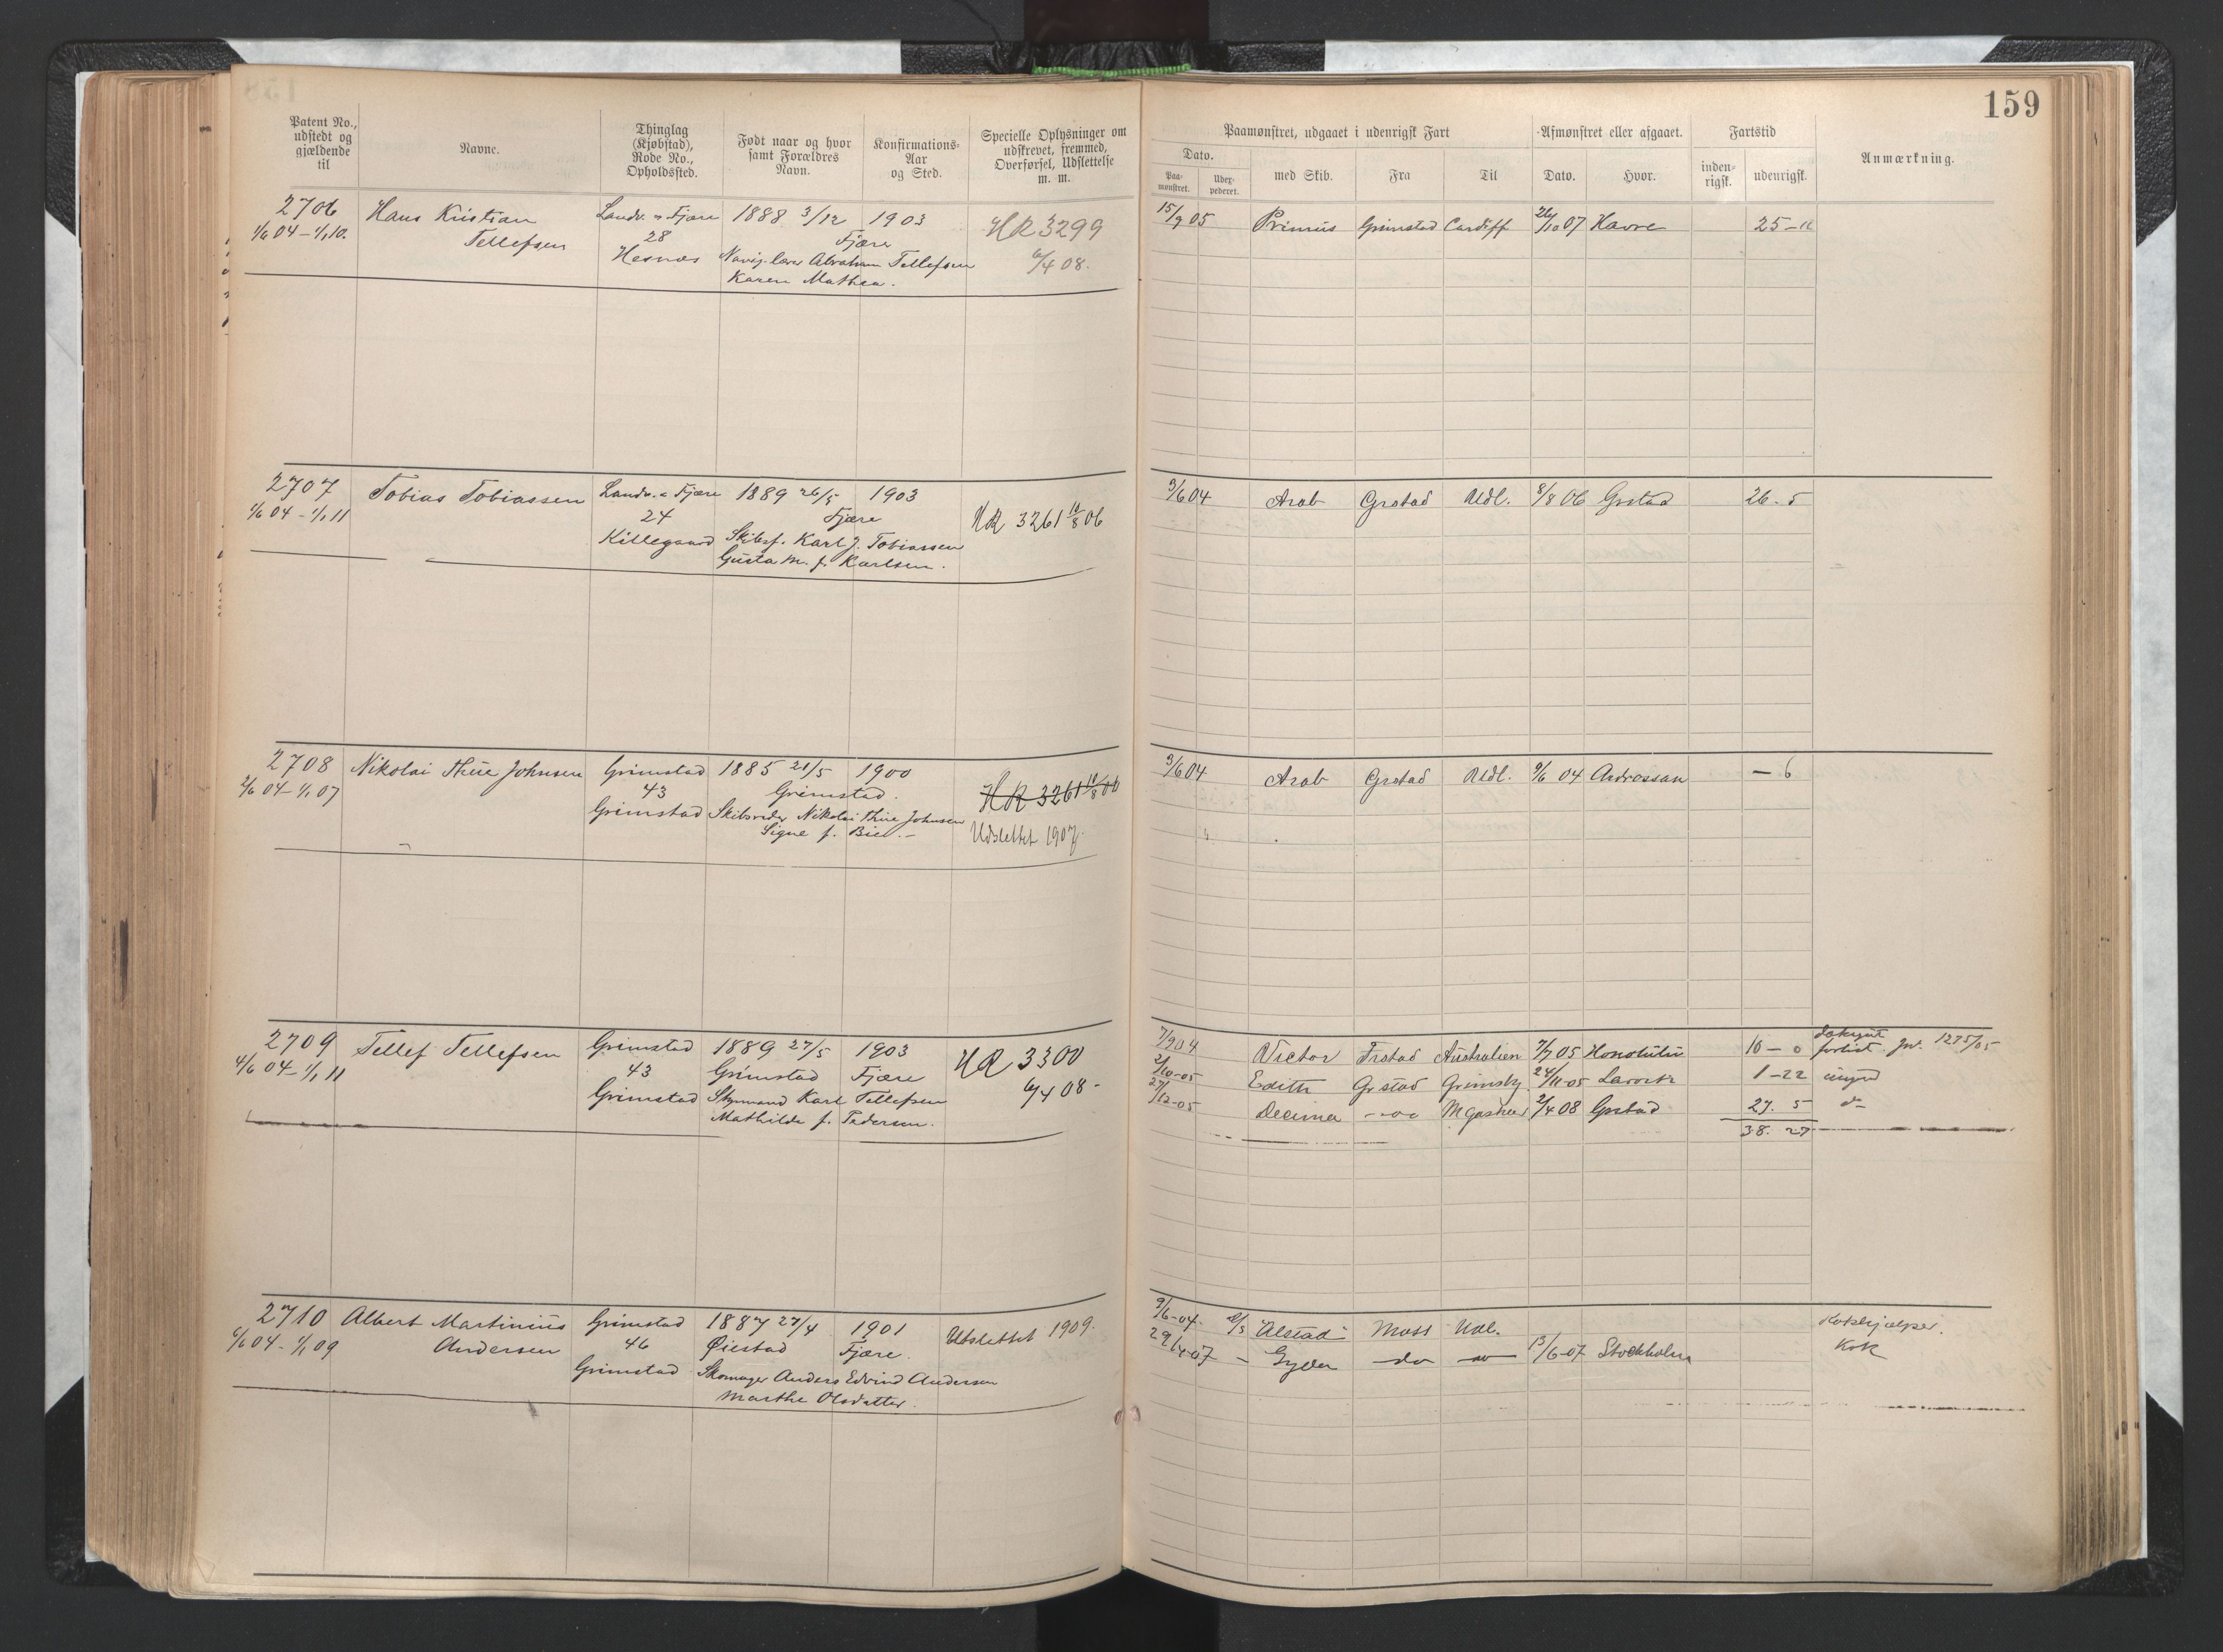 159
Patent No., udstedt og gjældende til
Navne.
Thinglag (Kjøbstad), Rode No., Opholdssted.
Født naar og hvor samt Forældres Navn.
Konfirmations-Aar og Sted.
Specielle Oplysninger om udskrevet, fremmed, Overførsel, Udslettelse m. m.
Paamønstret, udgaaet i udenrigsk Fart
Afmønstret eller afgaaet.
Fartstid
Anmærkning.
Dato.
Paa-mønstret.
Udex-pederet.
med Skib.
Fra
Til
Dato.
Hvor.
inden-rigsk.
udenrigsk.
2706 Hans Kristian Landv. - Fjære 1888 3/12 1903 HR 3299
1/6 04 - 1/1 10. Tellefsen 28 Fjære
Hesnes Navig. lærer Abraham Tellefsen 6/4 08.
Karen Mathea.
15/9 05 Primus Grimstad Cardiff 26/10 07 Havre 25 - 11
2707 Tobias Tobiassen Landv. - Fjære 1889 26/5 1903
1/6 04 - 1/1 11 24 Fjære HR 3261 10/8 06
Killegaard Skibsf. Karl J. Tobiassen
Gusta M. f. Karlsen.
3/6 04 Arab Grstad Udl. 8/8 06 Grstad 26 - 5
2708 Nikolai Thue Johnsen Grimstad 1885 21/5 1900
2/6 04 - 1/1 07 43 Grimstad. HR 3261 10/8 06
Grimstad Skibsreder Nikolai Thue Johnsen
Signe f. Bie. - Udslettet 1907.
3/6 04 Arab Grstad Udl. 9/6 04 Ardrossan - 6
2709 Tellef Tellefsen Grimstad 1889 27/5 1903 HR 3300
4/6 04 - 1/1 11 43 Grimstad Fjære
Grimstad Styrmand Karl Tellefsen 6/4 08 -
Mathilde f. Pedersen.
7/9 04 Victor Frstad Australien 7/7 05 Honolulu 10 - 0 forlist. Jnr. 1275/05
2/10-05 Edith Grstad Grimsby 24/11-05 1 - 22
27/12-05 Decima 2/4 08 Grstad 27. 5
38. 27
2710 Albert Martinius Grimstad 1887 27/4 1901 Utslettet 1909.
6/6 04 - 1/1 09 Andersen 46 Øiestad Fjære.
Grimstad Skomager Anders Edvind Andersen
Marthe Olsdatter.
9/6-04. Alstad Moss Udl. Kokhjælper.
29/4-07 - Gyller do do 13/6-07 Stockholm Kok